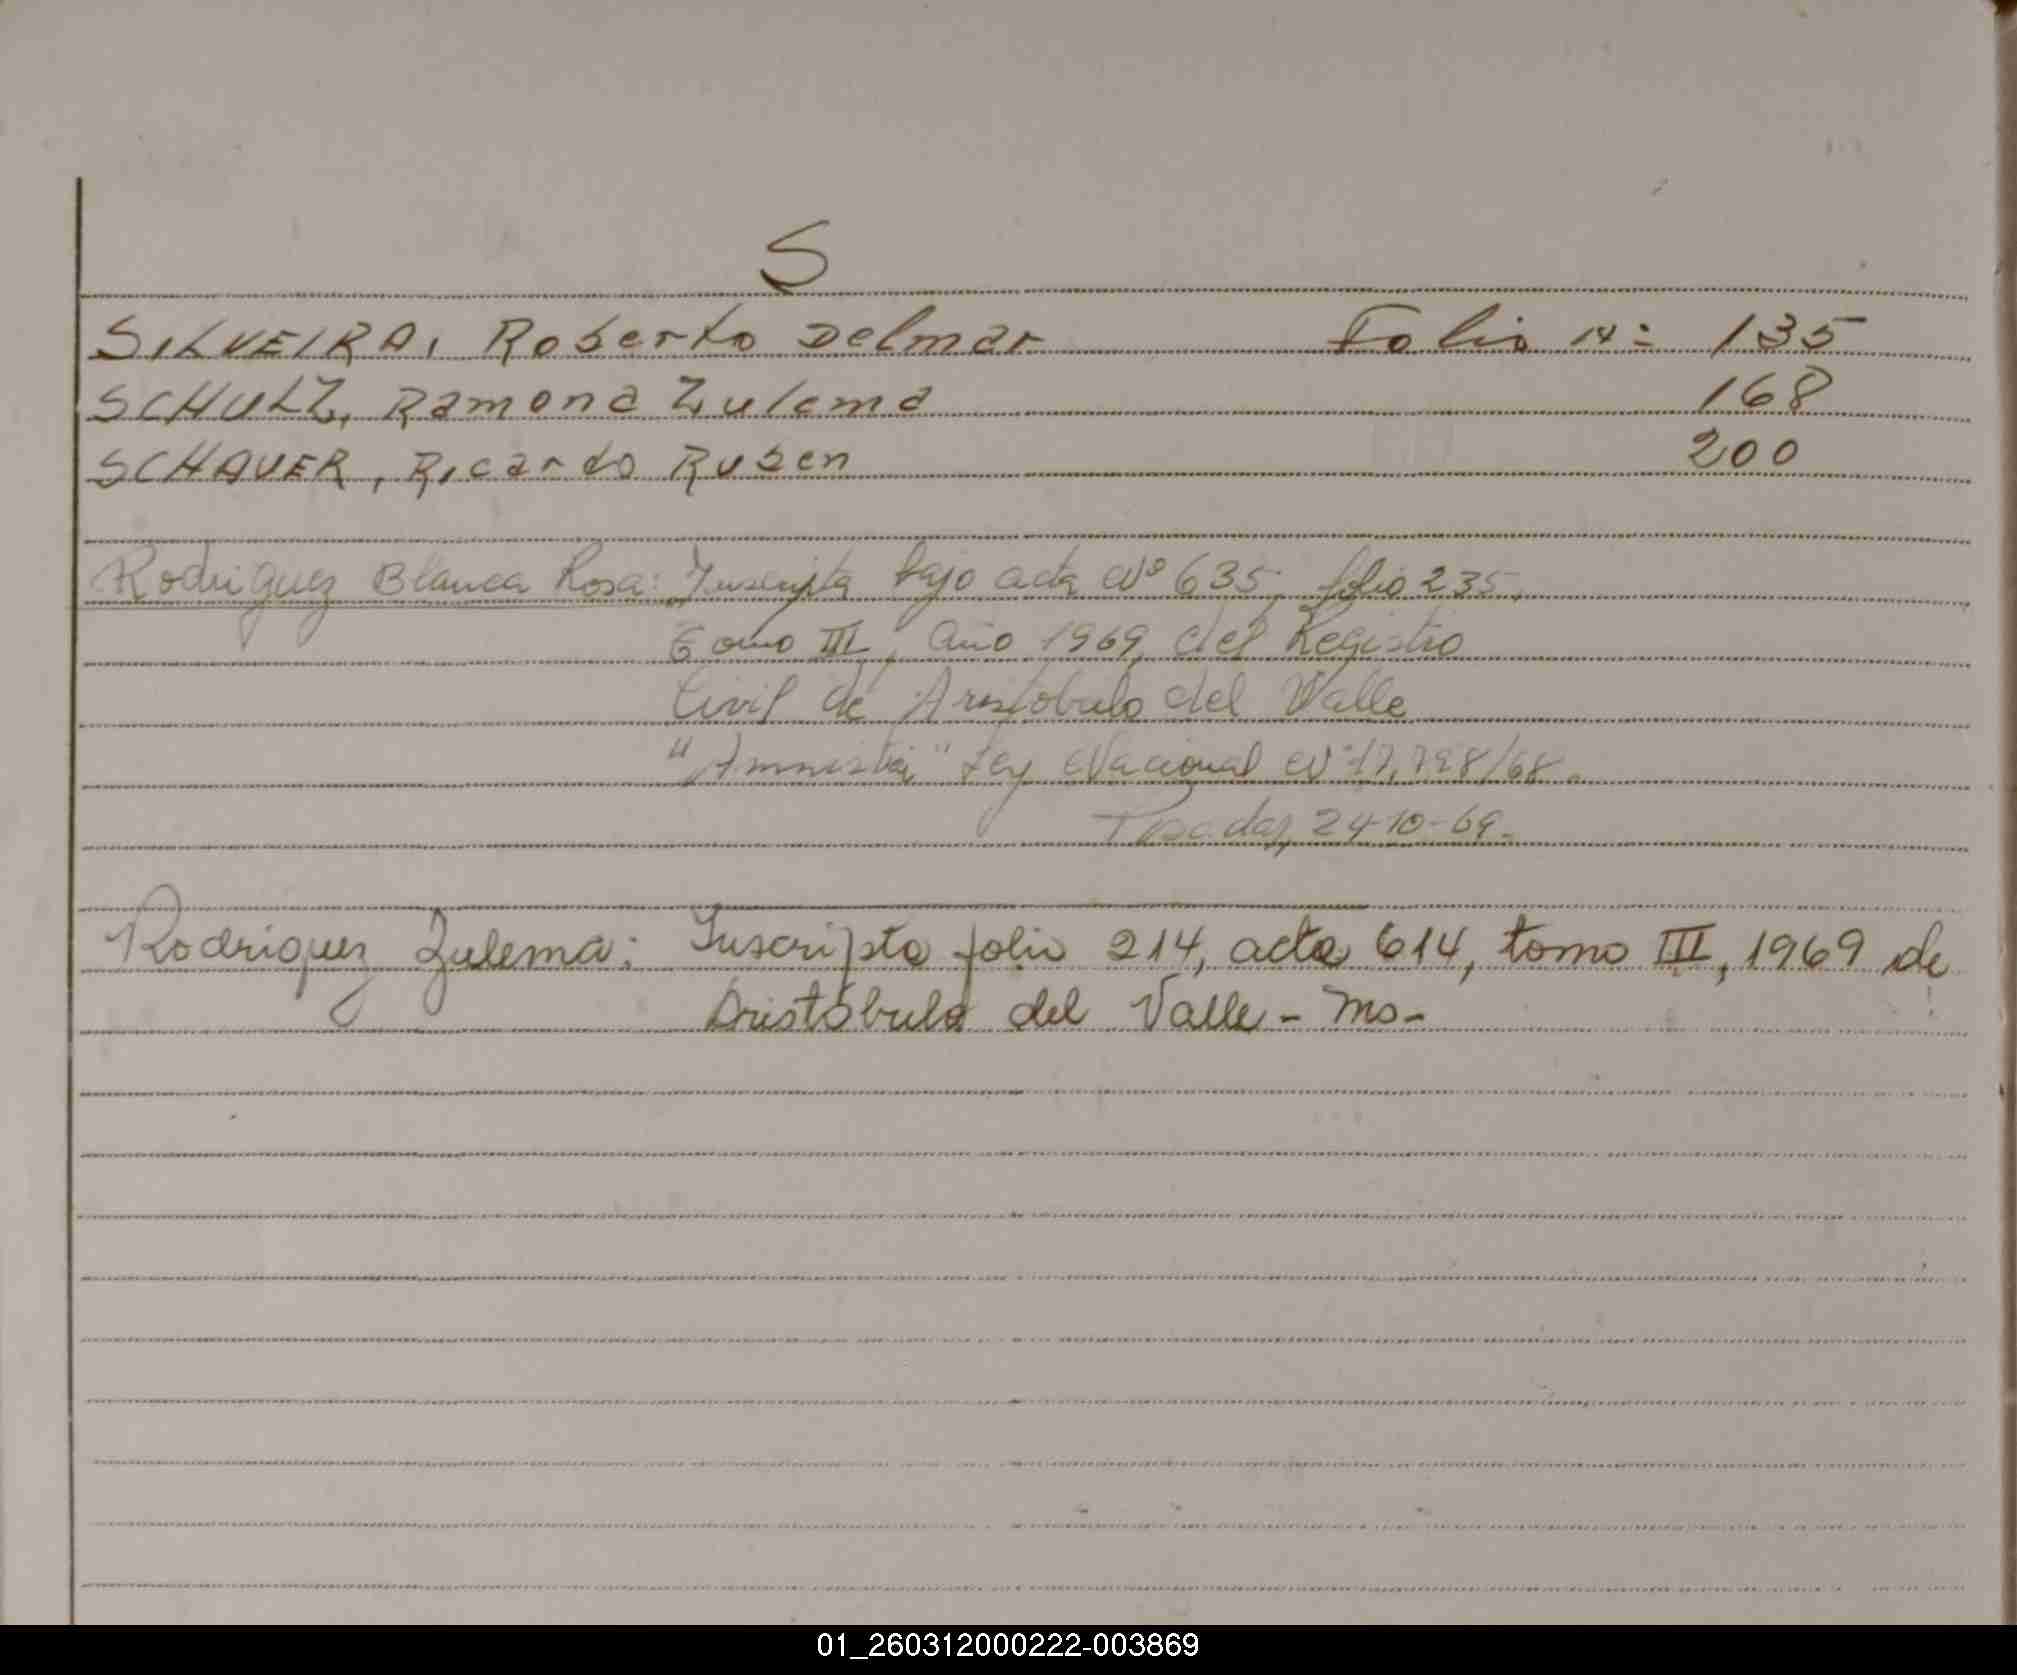 S
SILVEIRA, Roberto Delmar Folio N: 135
SCHULZ, Ramona Zulema 168
SCHAUER, Ricardo Ruben 200
Rodriguez Blanca Rosa: Inscripta bajo acta Nº 635, folio 235,
Tomo III, año 1969, del Registro
Civil de Aristobulo del Valle
"Amnistia" Ley Nacional Nº 17,798/68.
Posadas, 24-10-69.
Rodriguez Zulema: Inscripta folio 214, acta 614, tomo III, 1969 de
Aristóbulo del Valle - Ms-
01_260312000222-003869